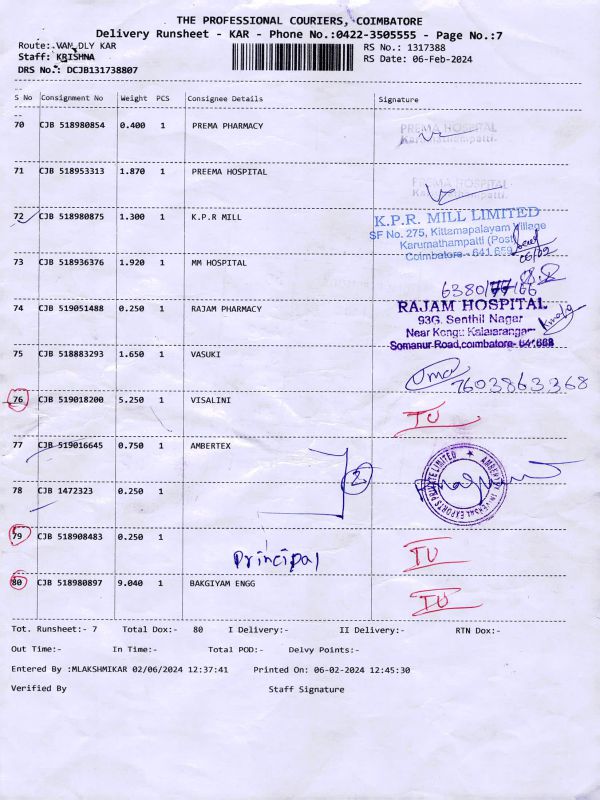 THE PROFESSIONAL COURIERS, COIMBATORE
Delivery Runsheet - KAR - Phone No.:0422-3505555 - Page No.:7
Route: VAN DLY KAR
RS No.: 1317388
Staff: KRISHNA
RS Date: 06-Feb-2024
DRS No.: DCJB131738807
S No Consignment No Weight PCS Consignee Details Signature
70 CJB 518980854 0.400 1 PREMA PHARMACY
PREMA HOSPITAL
Karumathampatti-
71 CJB 518953313 1.870 1 PREEMA HOSPITAL
PREMA HOSPITAL
Karumathampatti-
72 CJB 518980875 1.300 1 K.P.R MILL
K.P.R. MILL LIMITED
SF No. 275, Kittampalayam Village
Karumathampatti (Post)
Coimbatore - 641 659
06/02
73 CJB 518936376 1.920 1 MM HOSPITAL
74 CJB 519051488 0.250 1 RAJAM PHARMACY
RAJAM HOSPITAL
93G, Senthil Nagar
Near Kongu Kalaiarangam
Somanur Road, coimbatore- 641 668
75 CJB 518883293 1.650 1 VASUKI
Uma
7603863368
76 CJB 519018200 5.250 1 VISALINI
IU
77 CJB 519016645 0.750 1 AMBERTEX
2
78 CJB 1472323 0.250 1
79 CJB 518908483 0.250 1
Principal
IU
80 CJB 518980897 9.040 1 BAKGIYAM ENGG
IU
Tot. Runsheet:- 7 Total Dox:- 80 I Delivery:- II Delivery:- RTN Dox:-
Out Time:- In Time:- Total POD:- Delvy Points:-
Entered By :MLAKSHMIKAR 02/06/2024 12:37:41 Printed On: 06-02-2024 12:45:30
Verified By Staff Signature